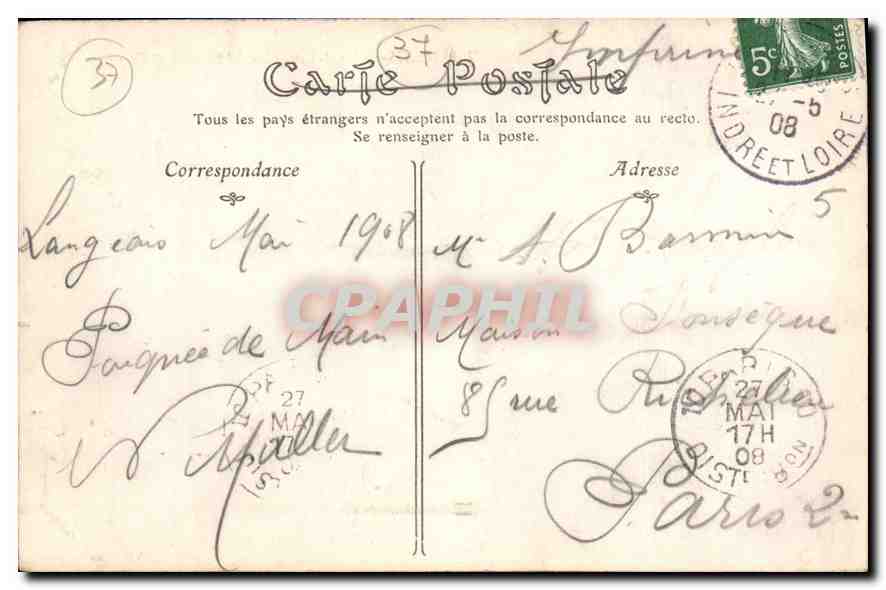 37
37
Imprimé
5c
POSTES
Carte Postale
27 -5
08
INDRE ET LOIRE
Tous les pays étrangers n'acceptent pas la correspondance au recto.
Se renseigner à la poste.
Correspondance
Adresse
5
Langeais Mai 1908
Poignée de Main
Mr A.
Maison
85 rue Richelieu
Paris 2
CPAPHIL
27
MAI
PARIS
27
MAI
17H
08
DISTRIBON